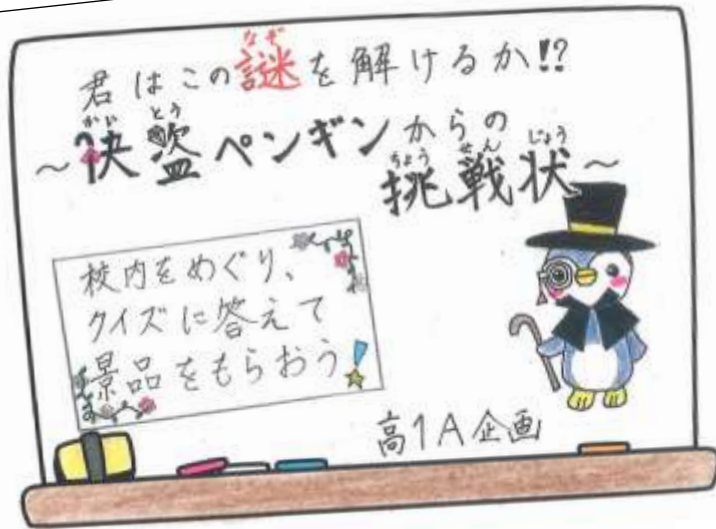 君はこの謎を解けるか!?
なぞ
~快盗ペンギンからの
かいとう
挑戦状~
ちょうせんじょう
校内をめぐり、
クイズに答えて
景品をもらおう!
高1A企画